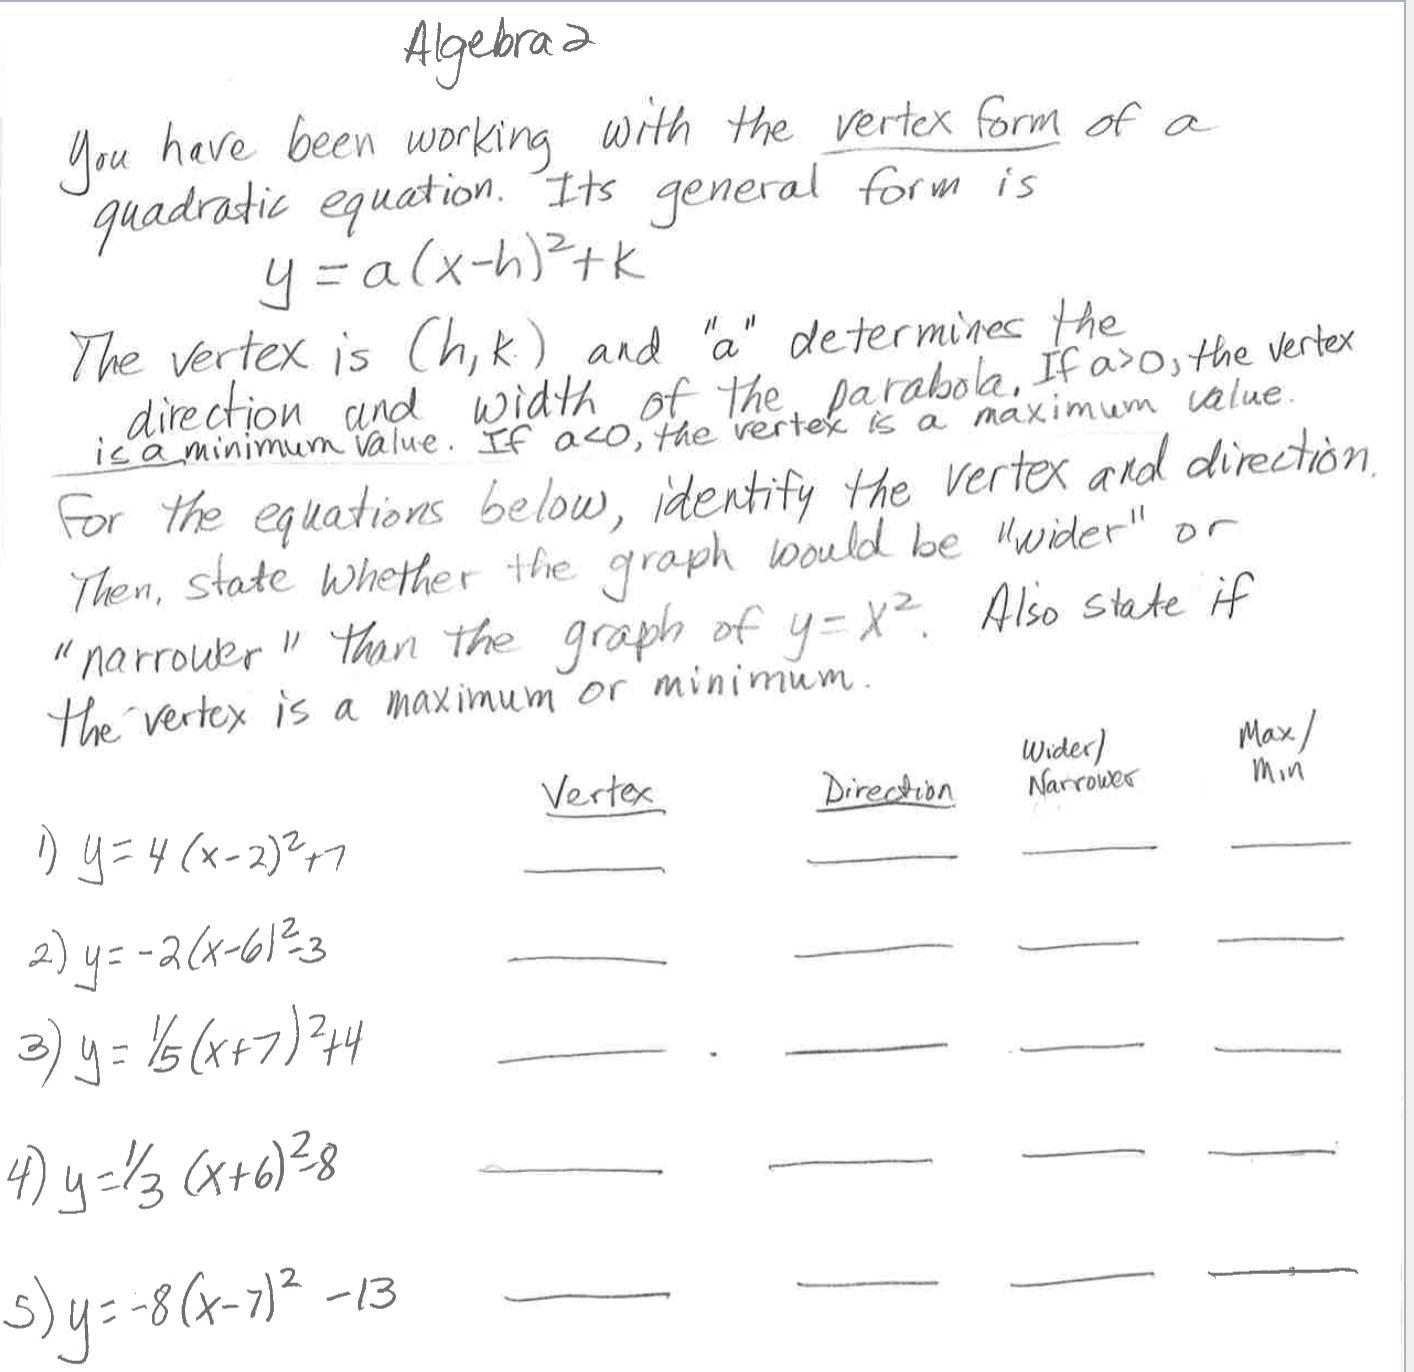 Algebra 2
You have been working with the vertex form of a
quadratic equation. Its general form is
y = a(x-h)²+k
The vertex is (h,k) and "a" determines the
direction and width of the parabola. If a>0, the vertex
is a minimum value. If a<0, the vertex is a maximum value.
For the equations below, identify the vertex and direction.
Then, state whether the graph would be "wider" or
"narrower" than the graph of y=x². Also state if
the vertex is a maximum or minimum.
Vertex Direction Wider/ Narrower Max/ Min
1) y=4(x-2)²+7
2) y=-2(x-6)²-3
3) y=1/5(x+7)²+4
4) y=1/3(x+6)²-8
5) y=-8(x-7)² -13